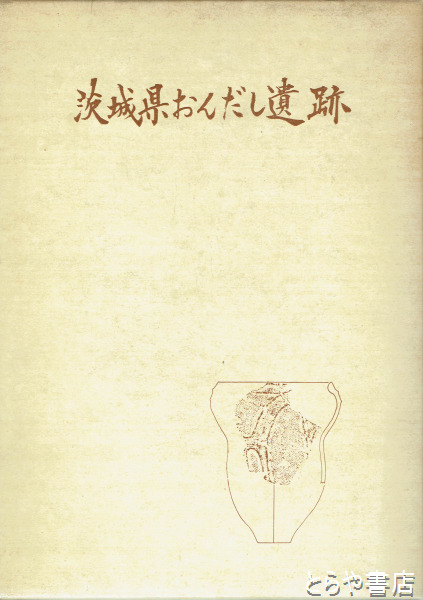 茨城県おんだし遺跡
とらや書店